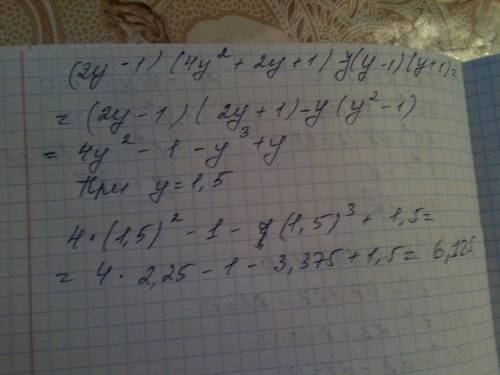 (2y - 1) (4y² + 2y + 1) - y(y - 1)(y + 1) =
= (2y - 1) (2y + 1) - y (y² - 1)
= 4y² - 1 - y³ + y
При y = 1,5
4 · (1,5)² - 1 - (1,5)³ + 1,5 =
= 4 · 2,25 - 1 - 3,375 + 1,5 = 6,125